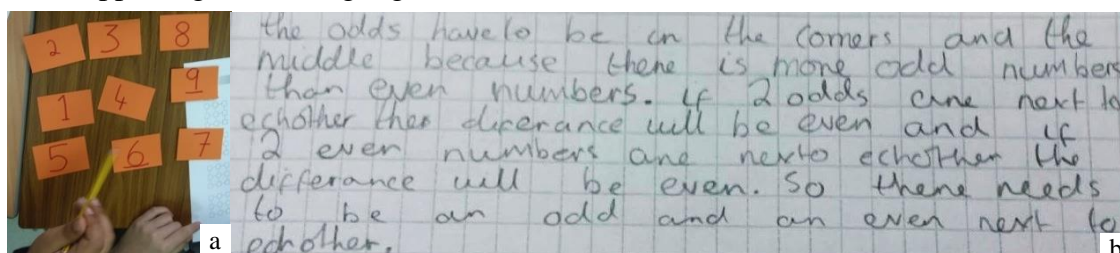 2 3 8
1 4 9
5 6 7
a
the odds have to be in the corners and the
middle because there is more odd numbers
than even numbers. if 2 odds are next to
echother then diferance will be even and if
2 even numbers are nexto echother the
differance will be even. So there needs
to be an odd and an even next to
echother.
b